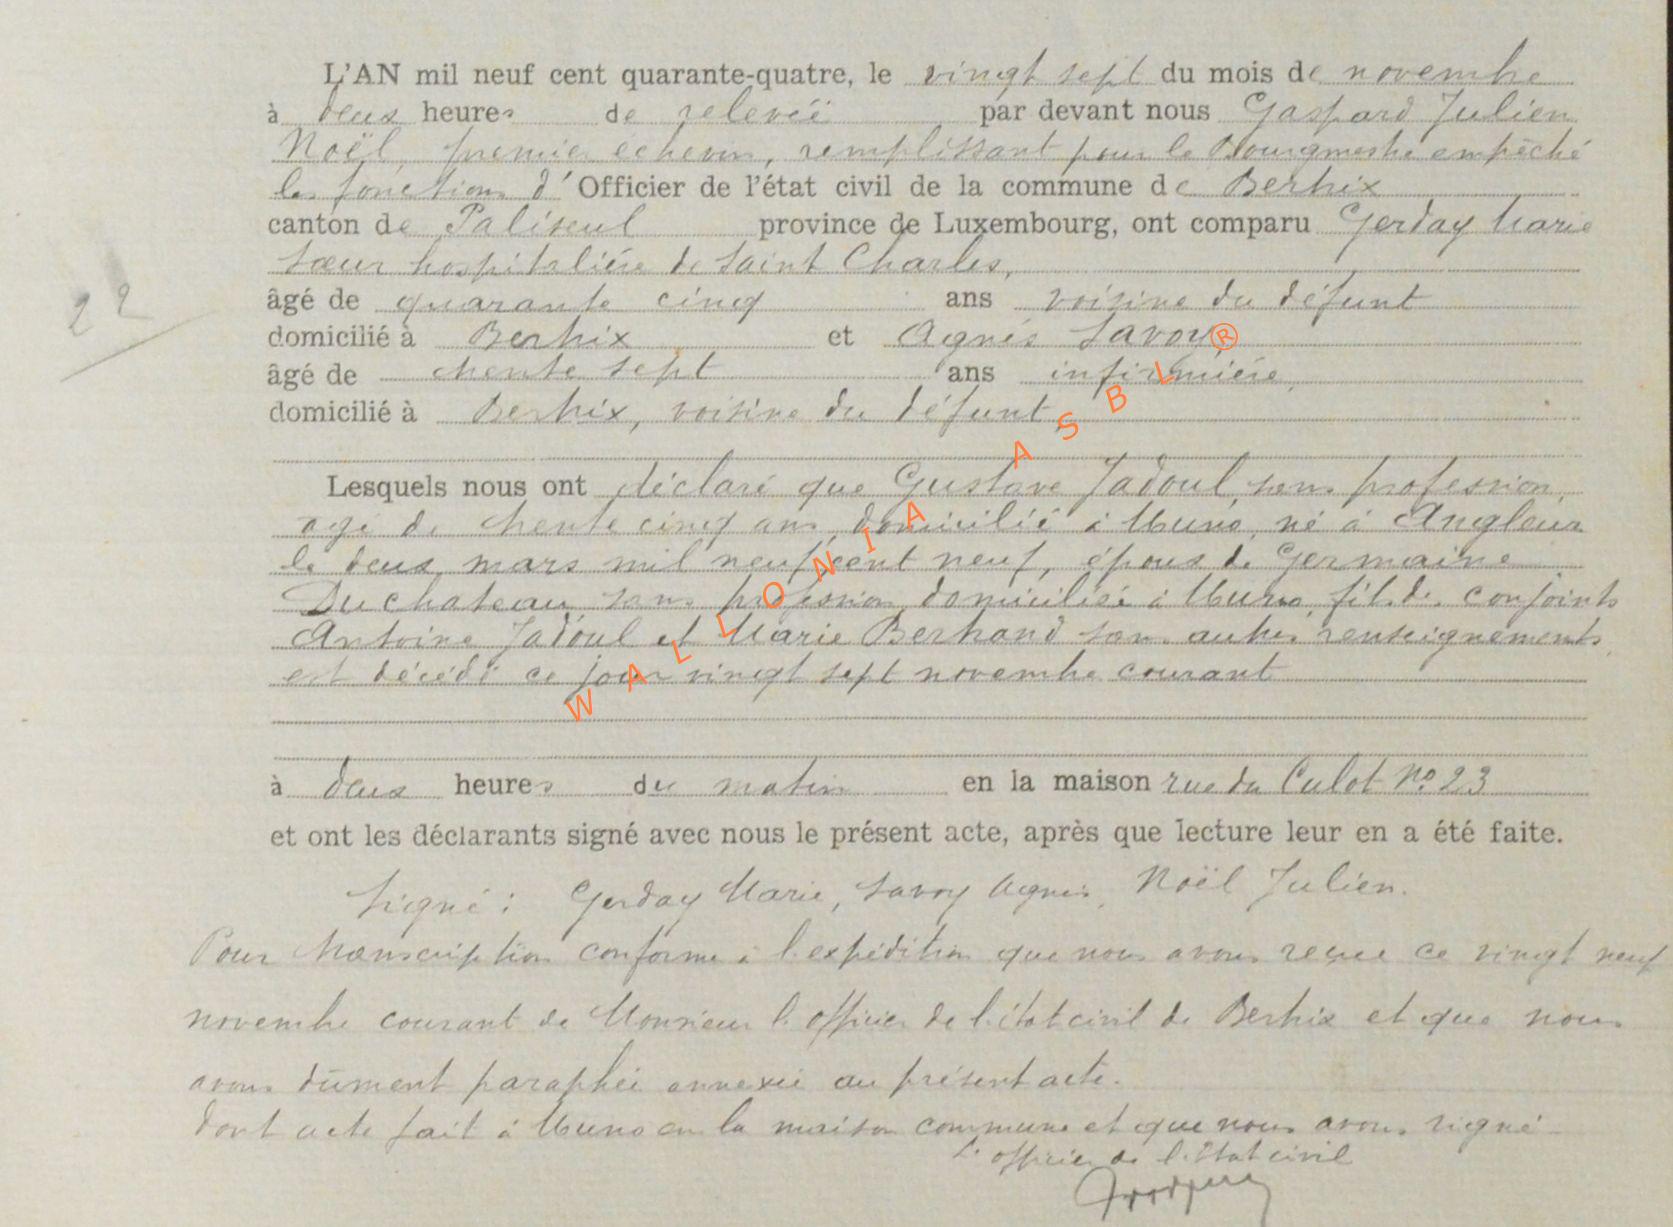 L'AN mil neuf cent quarante-quatre, le vingt sept du mois de novembre
à deux heures de relevéë par devant nous Gaspard Julien
Noël, premier echevin, remplissant pour le Bourgmestre empêché
les fonctions d' Officier de l'état civil de la commune de Bertrix
canton de Paliseul province de Luxembourg, ont comparu Gerday Marie
sœur hospitalière de Saint Charles,
âgé de quarante cinq ans voisine du défunt
domicilié à Bertrix et Agnès Savoy ®
âgé de trente sept ans infirmière,
domicilié à Bertrix, voisine du défunt
Lesquels nous ont déclaré que Gustave Jadoul, sans profession,
agé de trente cinq ans, domicilié à Muno, né à Angleur
le deux mars mil neuf cent neuf, époux de Germaine
Duchateau, sans profession, domiciliée à Muno, fils de conjoints
Antoine Jadoul et Marie Bertrand sans autres renseignements,
est décédé ce jour vingt sept novembre courant
WALLONIA ASBL
à deux heures du matin en la maison rue du Culot No 23
et ont les déclarants signé avec nous le présent acte, après que lecture leur en a été faite.
22
Signé : Gerday Marie, Savoy Agnès, Noël Julien.
Pour transcription conforme à l'expédition que nous avons reçue ce vingt neuf
novembre courant de Monsieur l'officier de l'état civil de Bertrix et que nous
avons dûment paraphée annexée au présent acte.
dont acte fait à Muno en la maison commune et que nous avons signé
L'officier de l'État civil